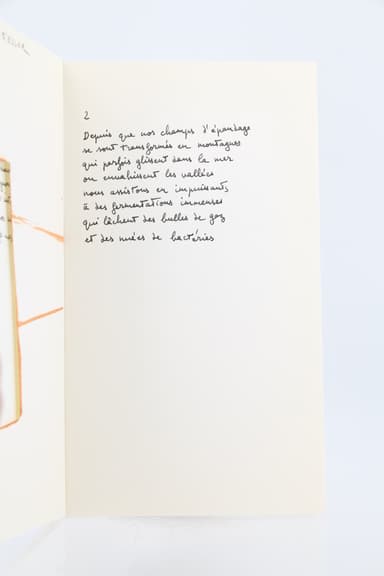 2
Depuis que nos champs d'épandage
se sont transformés en montagnes
qui parfois glissent dans la mer
ou envahissent les vallées
nous assistons en impuissants
à des fermentations immenses
qui lâchent des bulles de gaz
et des nuées de bactéries